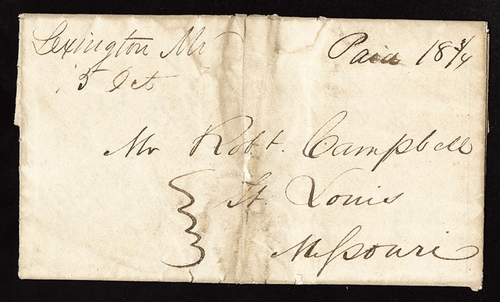 Lexington Mo
5 Oct
Paid 18 3/4
Mr Robt. Campbell
St. Louis
Missouri